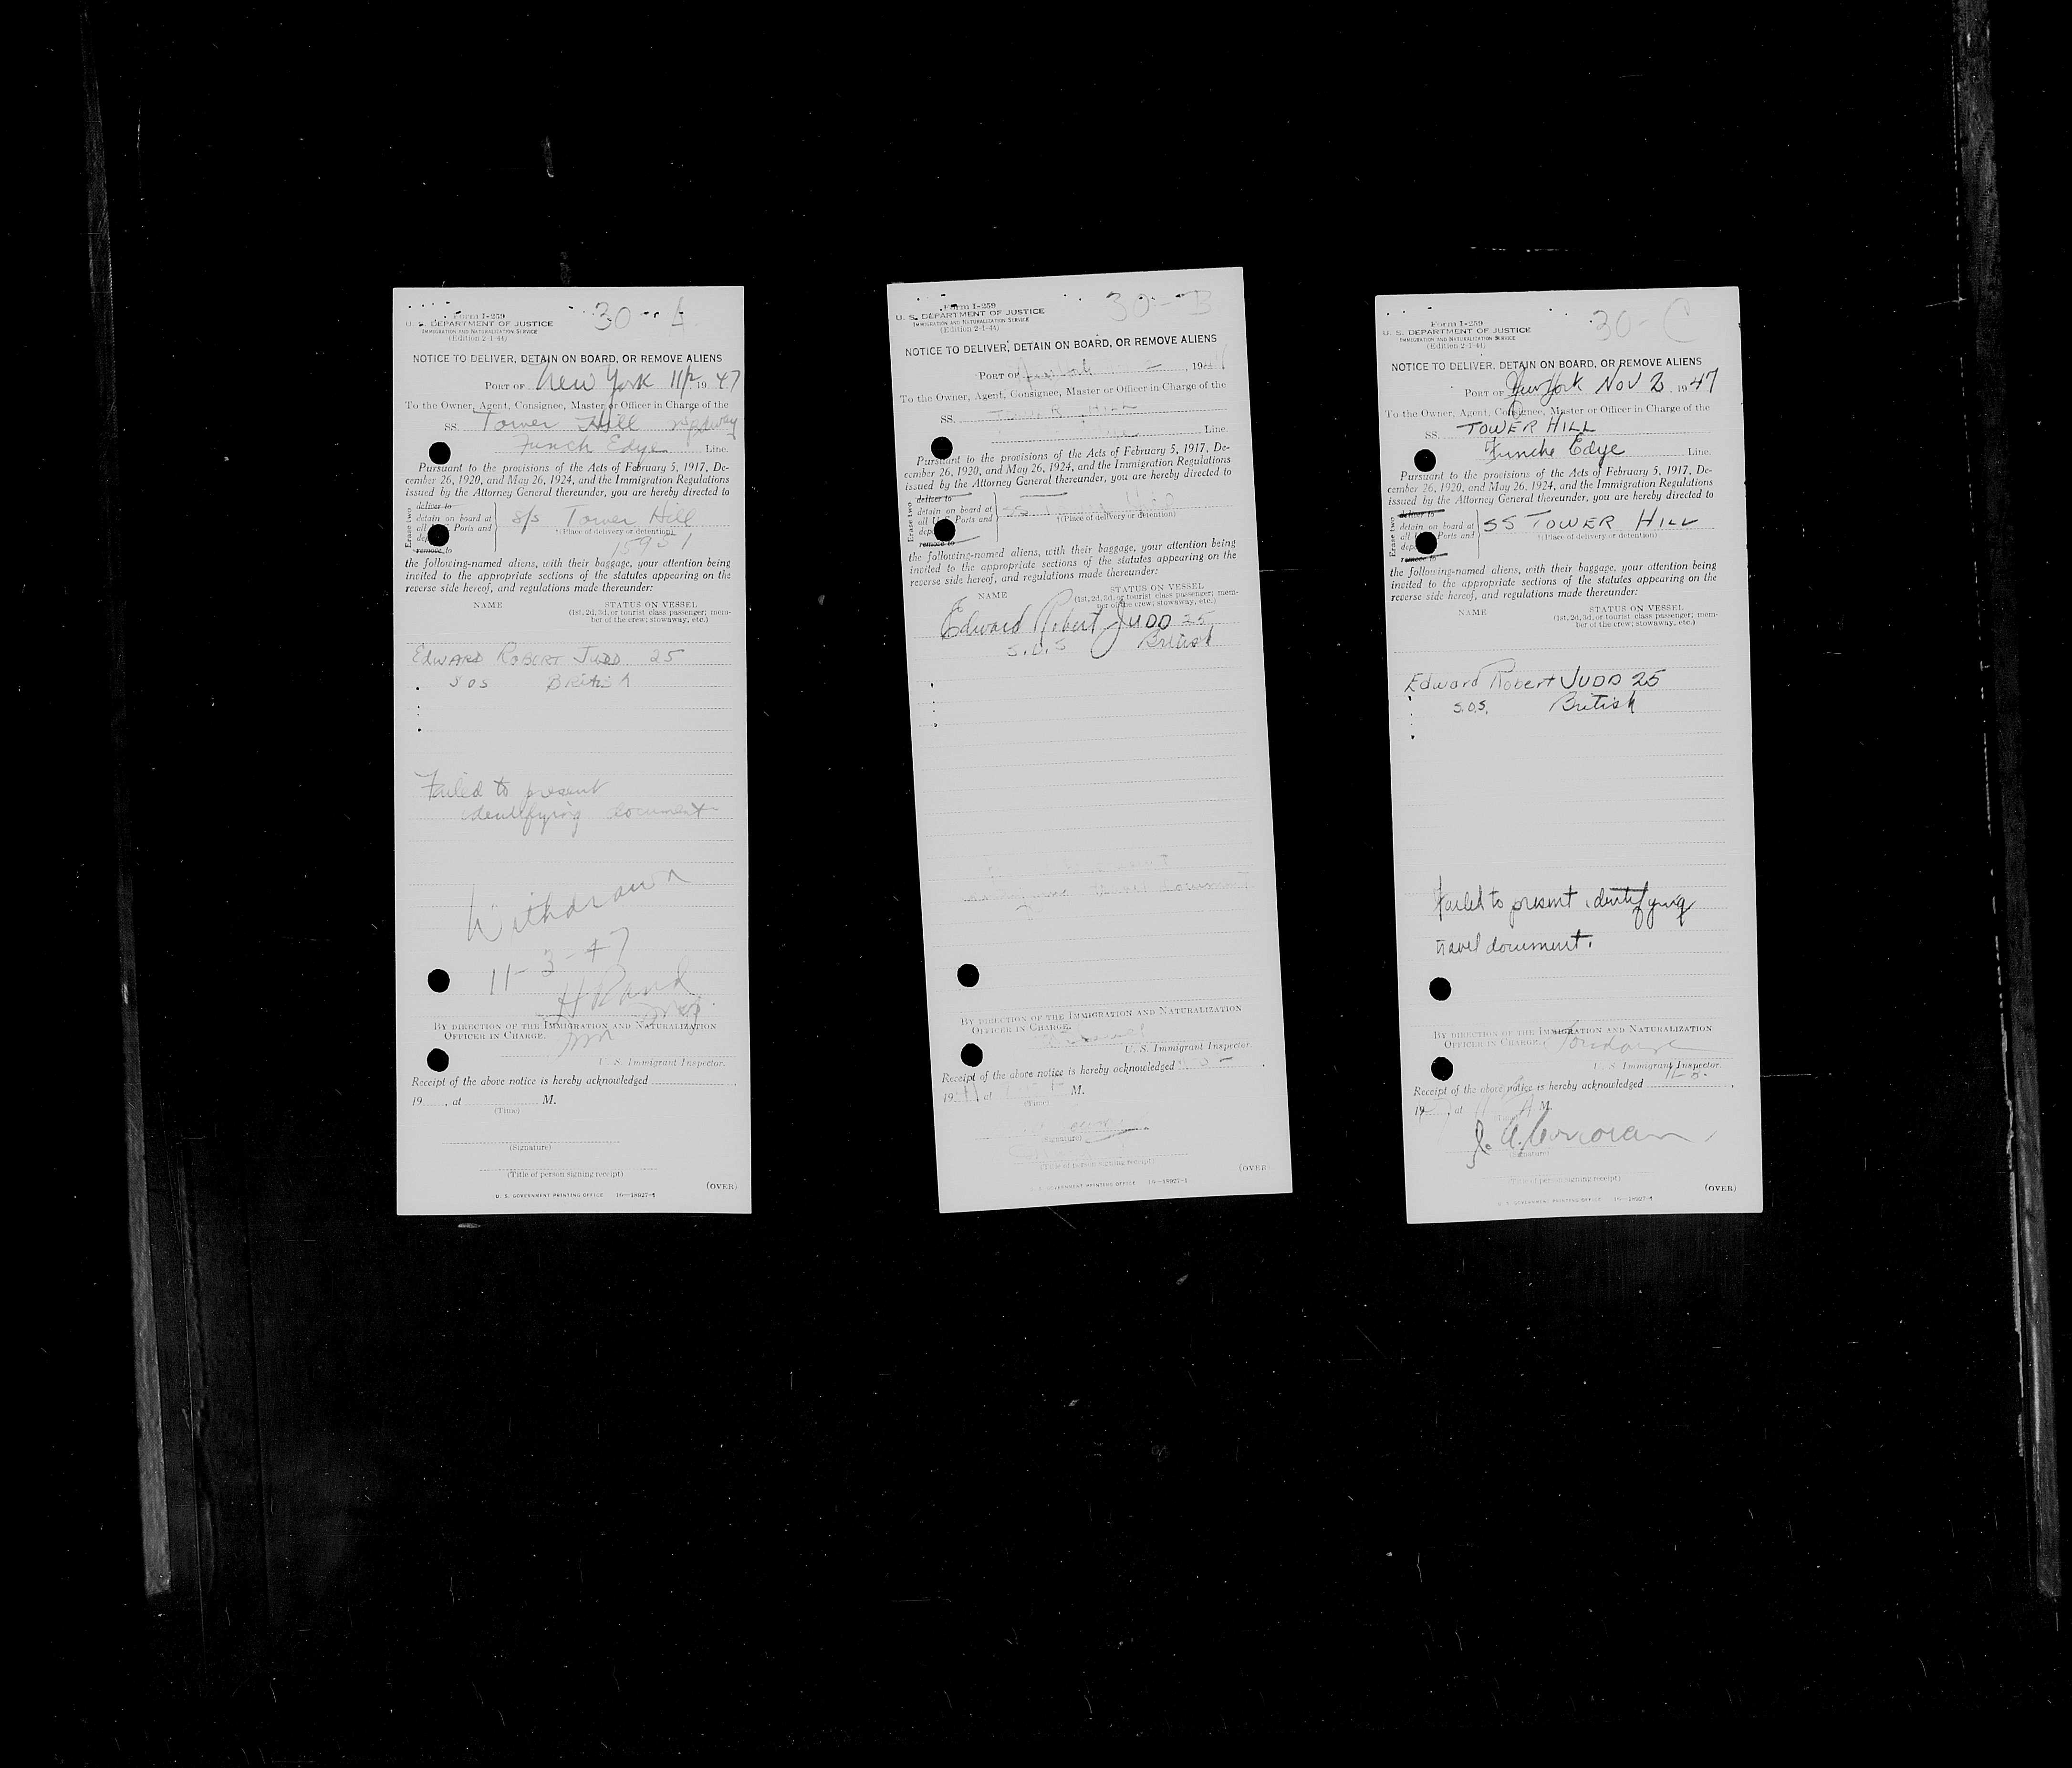 30-A
Form I-259
U. S. DEPARTMENT OF JUSTICE
IMMIGRATION AND NATURALIZATION SERVICE
(Edition 2-1-44)
NOTICE TO DELIVER, DETAIN ON BOARD, OR REMOVE ALIENS
PORT OF New York 11/2, 1947
To the Owner, Agent, Consignee, Master or Officer in Charge of the
SS. Tower Hill
Funch Edye Line.
Pursuant to the provisions of the Acts of February 5, 1917, De-
cember 26, 1920, and May 26, 1924, and the Immigration Regulations
issued by the Attorney General thereunder, you are hereby directed to
Erase two
deliver to
detain on board at
all Ports and
remove to
S/S Tower Hill
(Place of delivery or detention)
15951
the following-named aliens, with their baggage, your attention being
invited to the appropriate sections of the statutes appearing on the
reverse side hereof, and regulations made thereunder:
NAME STATUS ON VESSEL
(1st, 2d, 3d, or tourist class passenger; mem-
ber of the crew; stowaway, etc.)
EDWARD ROBERT JUDD 25
SOS British
Failed to present
identifying document
Withdrawn
11-3-47
BY DIRECTION OF THE IMMIGRATION AND NATURALIZATION
OFFICER IN CHARGE.
U. S. Immigrant Inspector.
Receipt of the above notice is hereby acknowledged
19 , at M.
(Time)
(Signature)
(Title of person signing receipt)
(OVER)
U. S. GOVERNMENT PRINTING OFFICE 16—18927-1
30-B
Form I-259
U. S. DEPARTMENT OF JUSTICE
IMMIGRATION AND NATURALIZATION SERVICE
(Edition 2-1-44)
NOTICE TO DELIVER, DETAIN ON BOARD, OR REMOVE ALIENS
PORT OF New York 2, 1947
To the Owner, Agent, Consignee, Master or Officer in Charge of the
SS. TOWER HILL
Line.
Pursuant to the provisions of the Acts of February 5, 1917, De-
cember 26, 1920, and May 26, 1924, and the Immigration Regulations
issued by the Attorney General thereunder, you are hereby directed to
Erase two
deliver to
detain on board at
all U.S. Ports and
remove to
SS
(Place of delivery or detention)
the following-named aliens, with their baggage, your attention being
invited to the appropriate sections of the statutes appearing on the
reverse side hereof, and regulations made thereunder:
NAME STATUS ON VESSEL
(1st, 2d, 3d, or tourist class passenger; mem-
ber of the crew; stowaway, etc.)
Edward Robert JUDD 25
S.O.S British
BY DIRECTION OF THE IMMIGRATION AND NATURALIZATION
OFFICER IN CHARGE.
U. S. Immigrant Inspector
Receipt of the above notice is hereby acknowledged
19 , at M.
(Time)
(Signature)
(Title of person signing receipt)
(OVER)
U. S. GOVERNMENT PRINTING OFFICE 16—18927-1
30-C
Form I-259
U. S. DEPARTMENT OF JUSTICE
IMMIGRATION AND NATURALIZATION SERVICE
(Edition 2-1-44)
NOTICE TO DELIVER, DETAIN ON BOARD, OR REMOVE ALIENS
PORT OF New York Nov 2, 1947
To the Owner, Agent, Consignee, Master or Officer in Charge of the
SS. TOWER HILL
Funche Edye Line.
Pursuant to the provisions of the Acts of February 5, 1917, De-
cember 26, 1920, and May 26, 1924, and the Immigration Regulations
issued by the Attorney General thereunder, you are hereby directed to
Erase two
deliver to
detain on board at
all Ports and
remove to
SS TOWER HILL
(Place of delivery or detention)
the following-named aliens, with their baggage, your attention being
invited to the appropriate sections of the statutes appearing on the
reverse side hereof, and regulations made thereunder:
NAME STATUS ON VESSEL
(1st, 2d, 3d, or tourist class passenger; mem-
ber of the crew; stowaway, etc.)
Edward Robert JUDD 25
S.O.S. British
Failed to present identifying
travel document.
BY DIRECTION OF THE IMMIGRATION AND NATURALIZATION
OFFICER IN CHARGE.
U. S. Immigrant Inspector.
Receipt of the above notice is hereby acknowledged
1947, at A M.
J. A. Corcoran
(Signature)
(Title of person signing receipt)
(OVER)
U. S. GOVERNMENT PRINTING OFFICE 16—18927-1